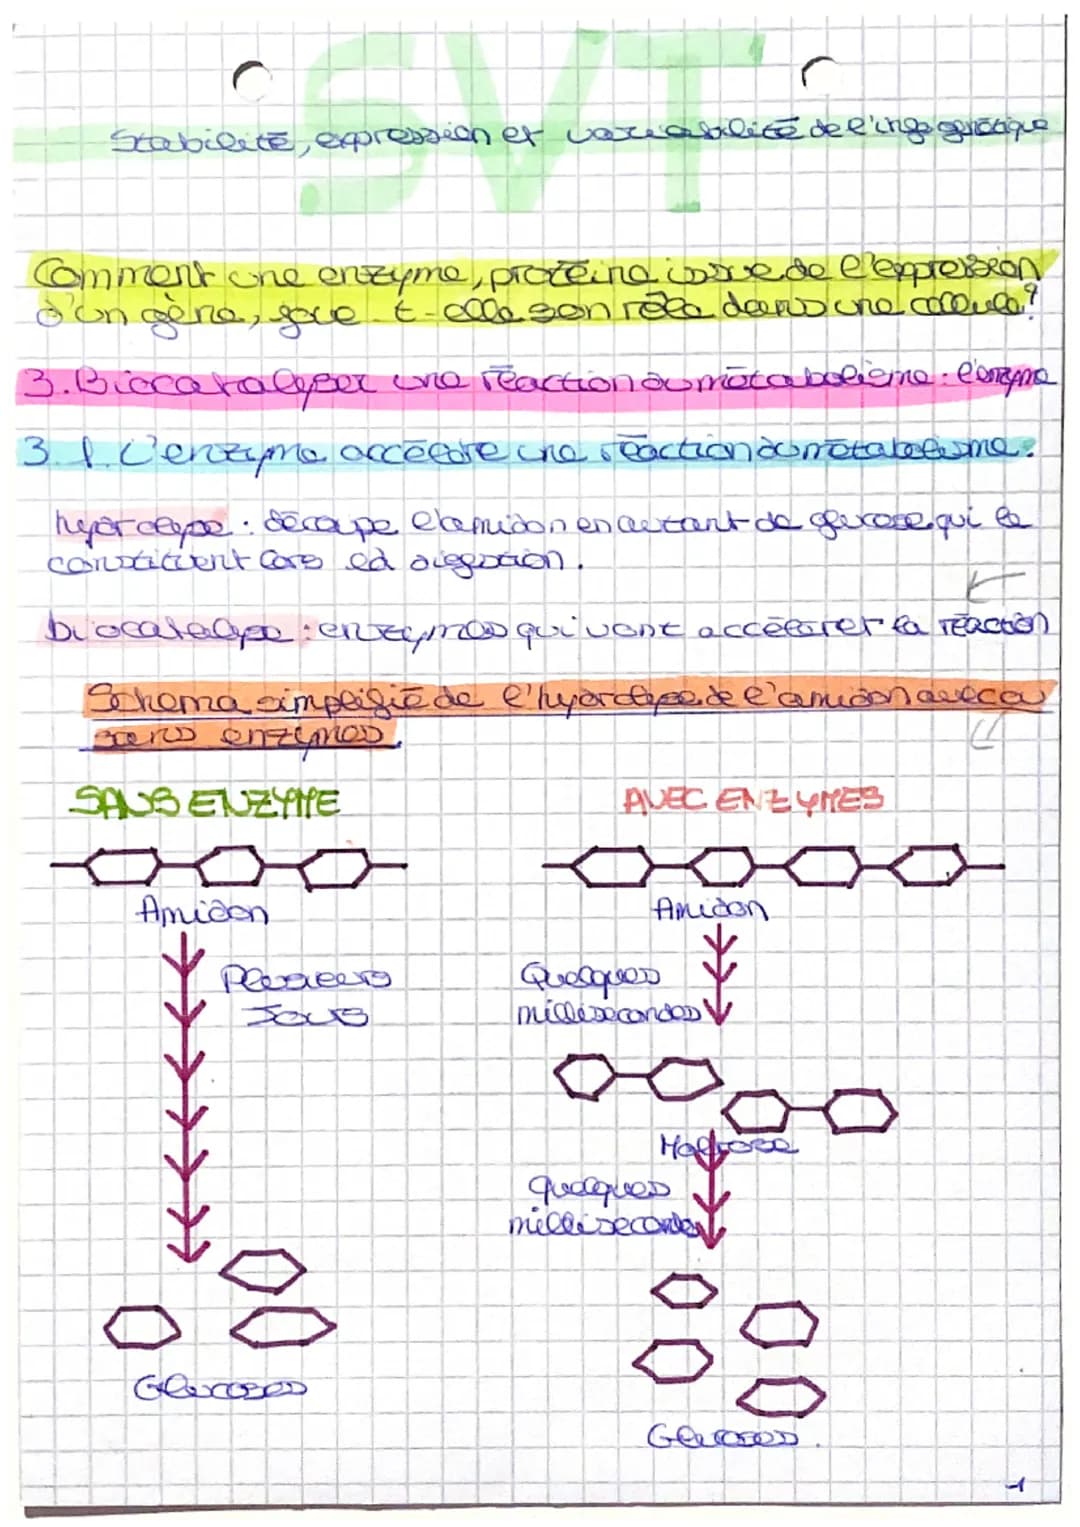 SVT
Stabilité, expression et variabilité de l'info génétique
Comment une enzyme, protéine issue de l'expression
d'un gène, joue t-elle son rôle dans une cellule?
3. Biocatalyser une réaction du métabolisme: l'enzyme
3.1. L'enzyme accélére une réaction du métabolisme:
hydrolyse: découpe l'amidon en autant de glucose qui le
constituent lors ed digestion.
biocatalyse: enzymes qui vont accélérer la réaction
Schema simplifié de l'hydrolyse de l'amidon avec ou
sans enzymes
SANS ENZYME AVEC ENZYMES
Amidon Amidon
Plusieurs Quelques
Jours millisecondes
Maltose
quelques
millisecondes
Glucoses
Glucoses.
1